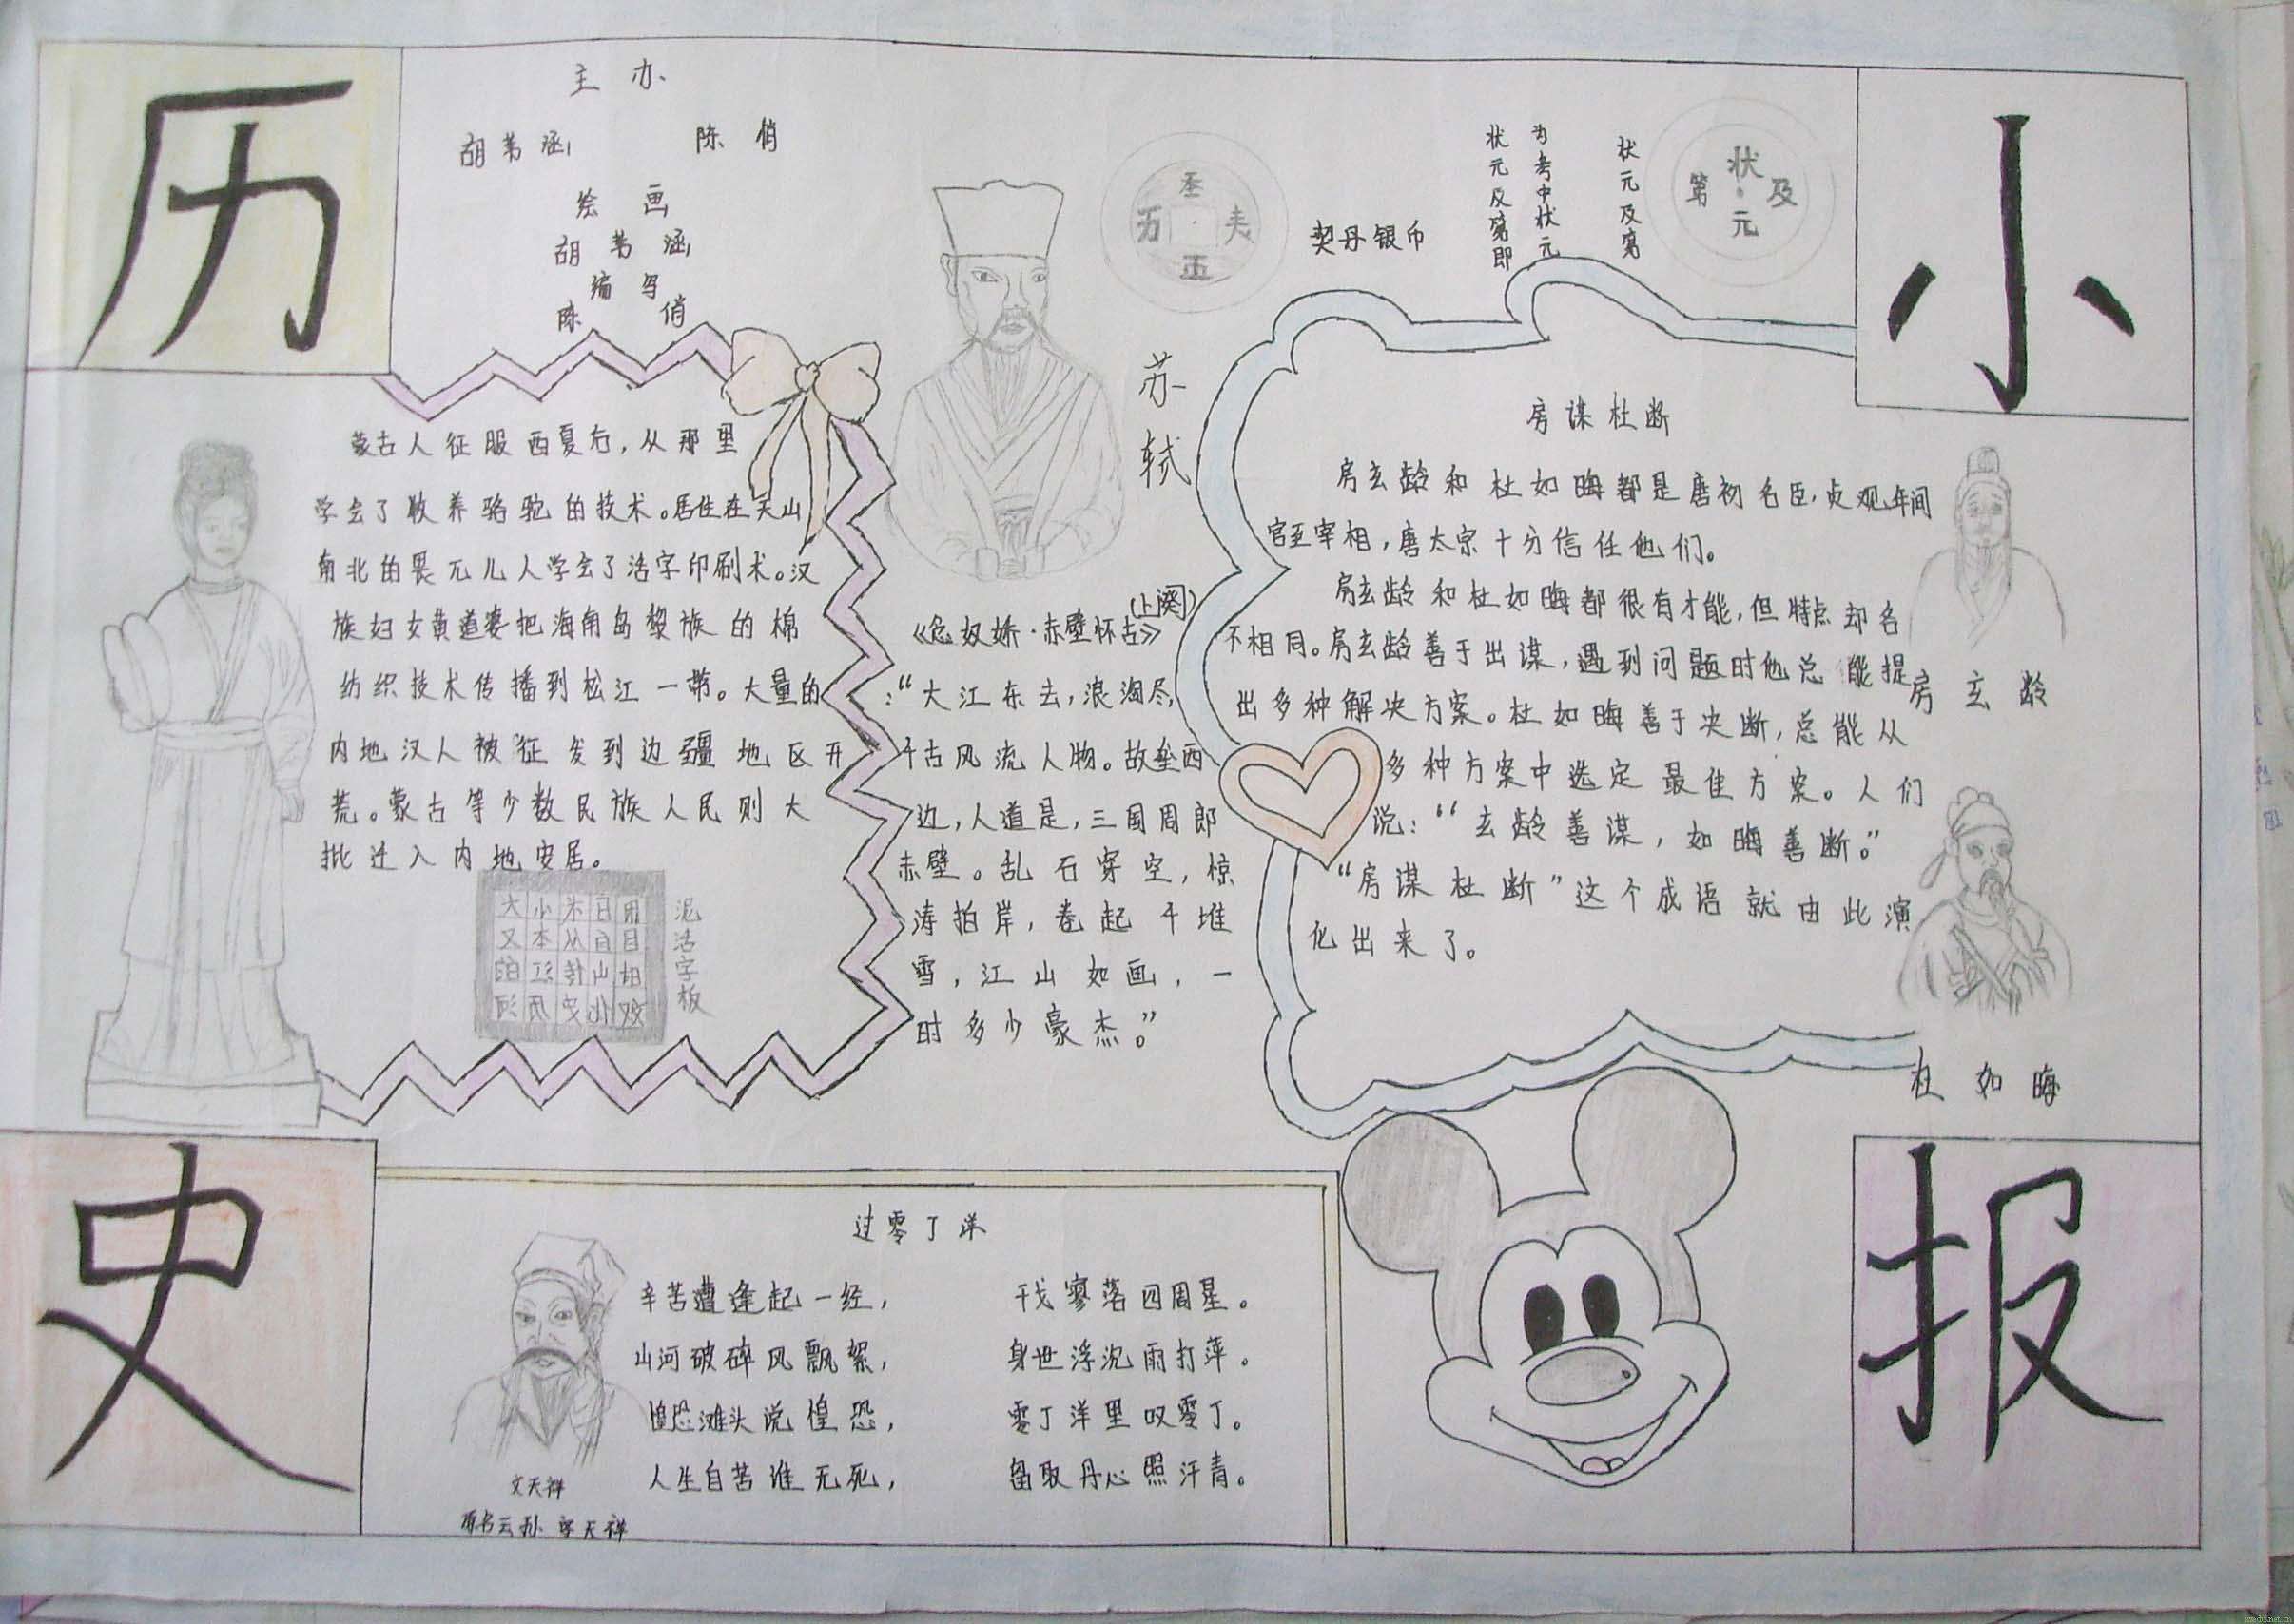 历
史
小
报
主办
胡苇涵 陈俏
绘画
胡苇涵
编写
陈俏
契丹银币
状元及第即
为考中状元
状元及第
状元及第
苏轼
蒙古人征服西夏后,从那里
学会了牧养骆驼的技术。居住在天山
南北的畏兀儿人学会了活字印刷术。汉
族妇女黄道婆把海南岛黎族的棉
纺织技术传播到松江一带。大量的
内地汉人被征发到边疆地区开
荒。蒙古等少数民族人民则大
批迁入内地安居。
泥活字板
《念奴娇·赤壁怀古》(上阕)
:“大江东去,浪淘尽,
千古风流人物。故垒西
边,人道是,三国周郎
赤壁。乱石穿空,惊
涛拍岸,卷起千堆
雪,江山如画,一
时多少豪杰。”
房谋杜断
房玄龄和杜如晦都是唐初名臣,贞观年间
官至宰相,唐太宗十分信任他们。
房玄龄和杜如晦都很有才能,但特点却各
不相同。房玄龄善于出谋,遇到问题时他总能提
出多种解决方案。杜如晦善于决断,总能从
多种方案中选定最佳方案。人们
说:“玄龄善谋,如晦善断。”
“房谋杜断”这个成语就由此演
化出来了。
房玄龄
杜如晦
过零丁洋
辛苦遭逢起一经, 干戈寥落四周星。
山河破碎风飘絮, 身世浮沉雨打萍。
惶恐滩头说惶恐, 零丁洋里叹零丁。
人生自苦谁无死, 留取丹心照汗青。
文天祥
原名云孙 字天祥